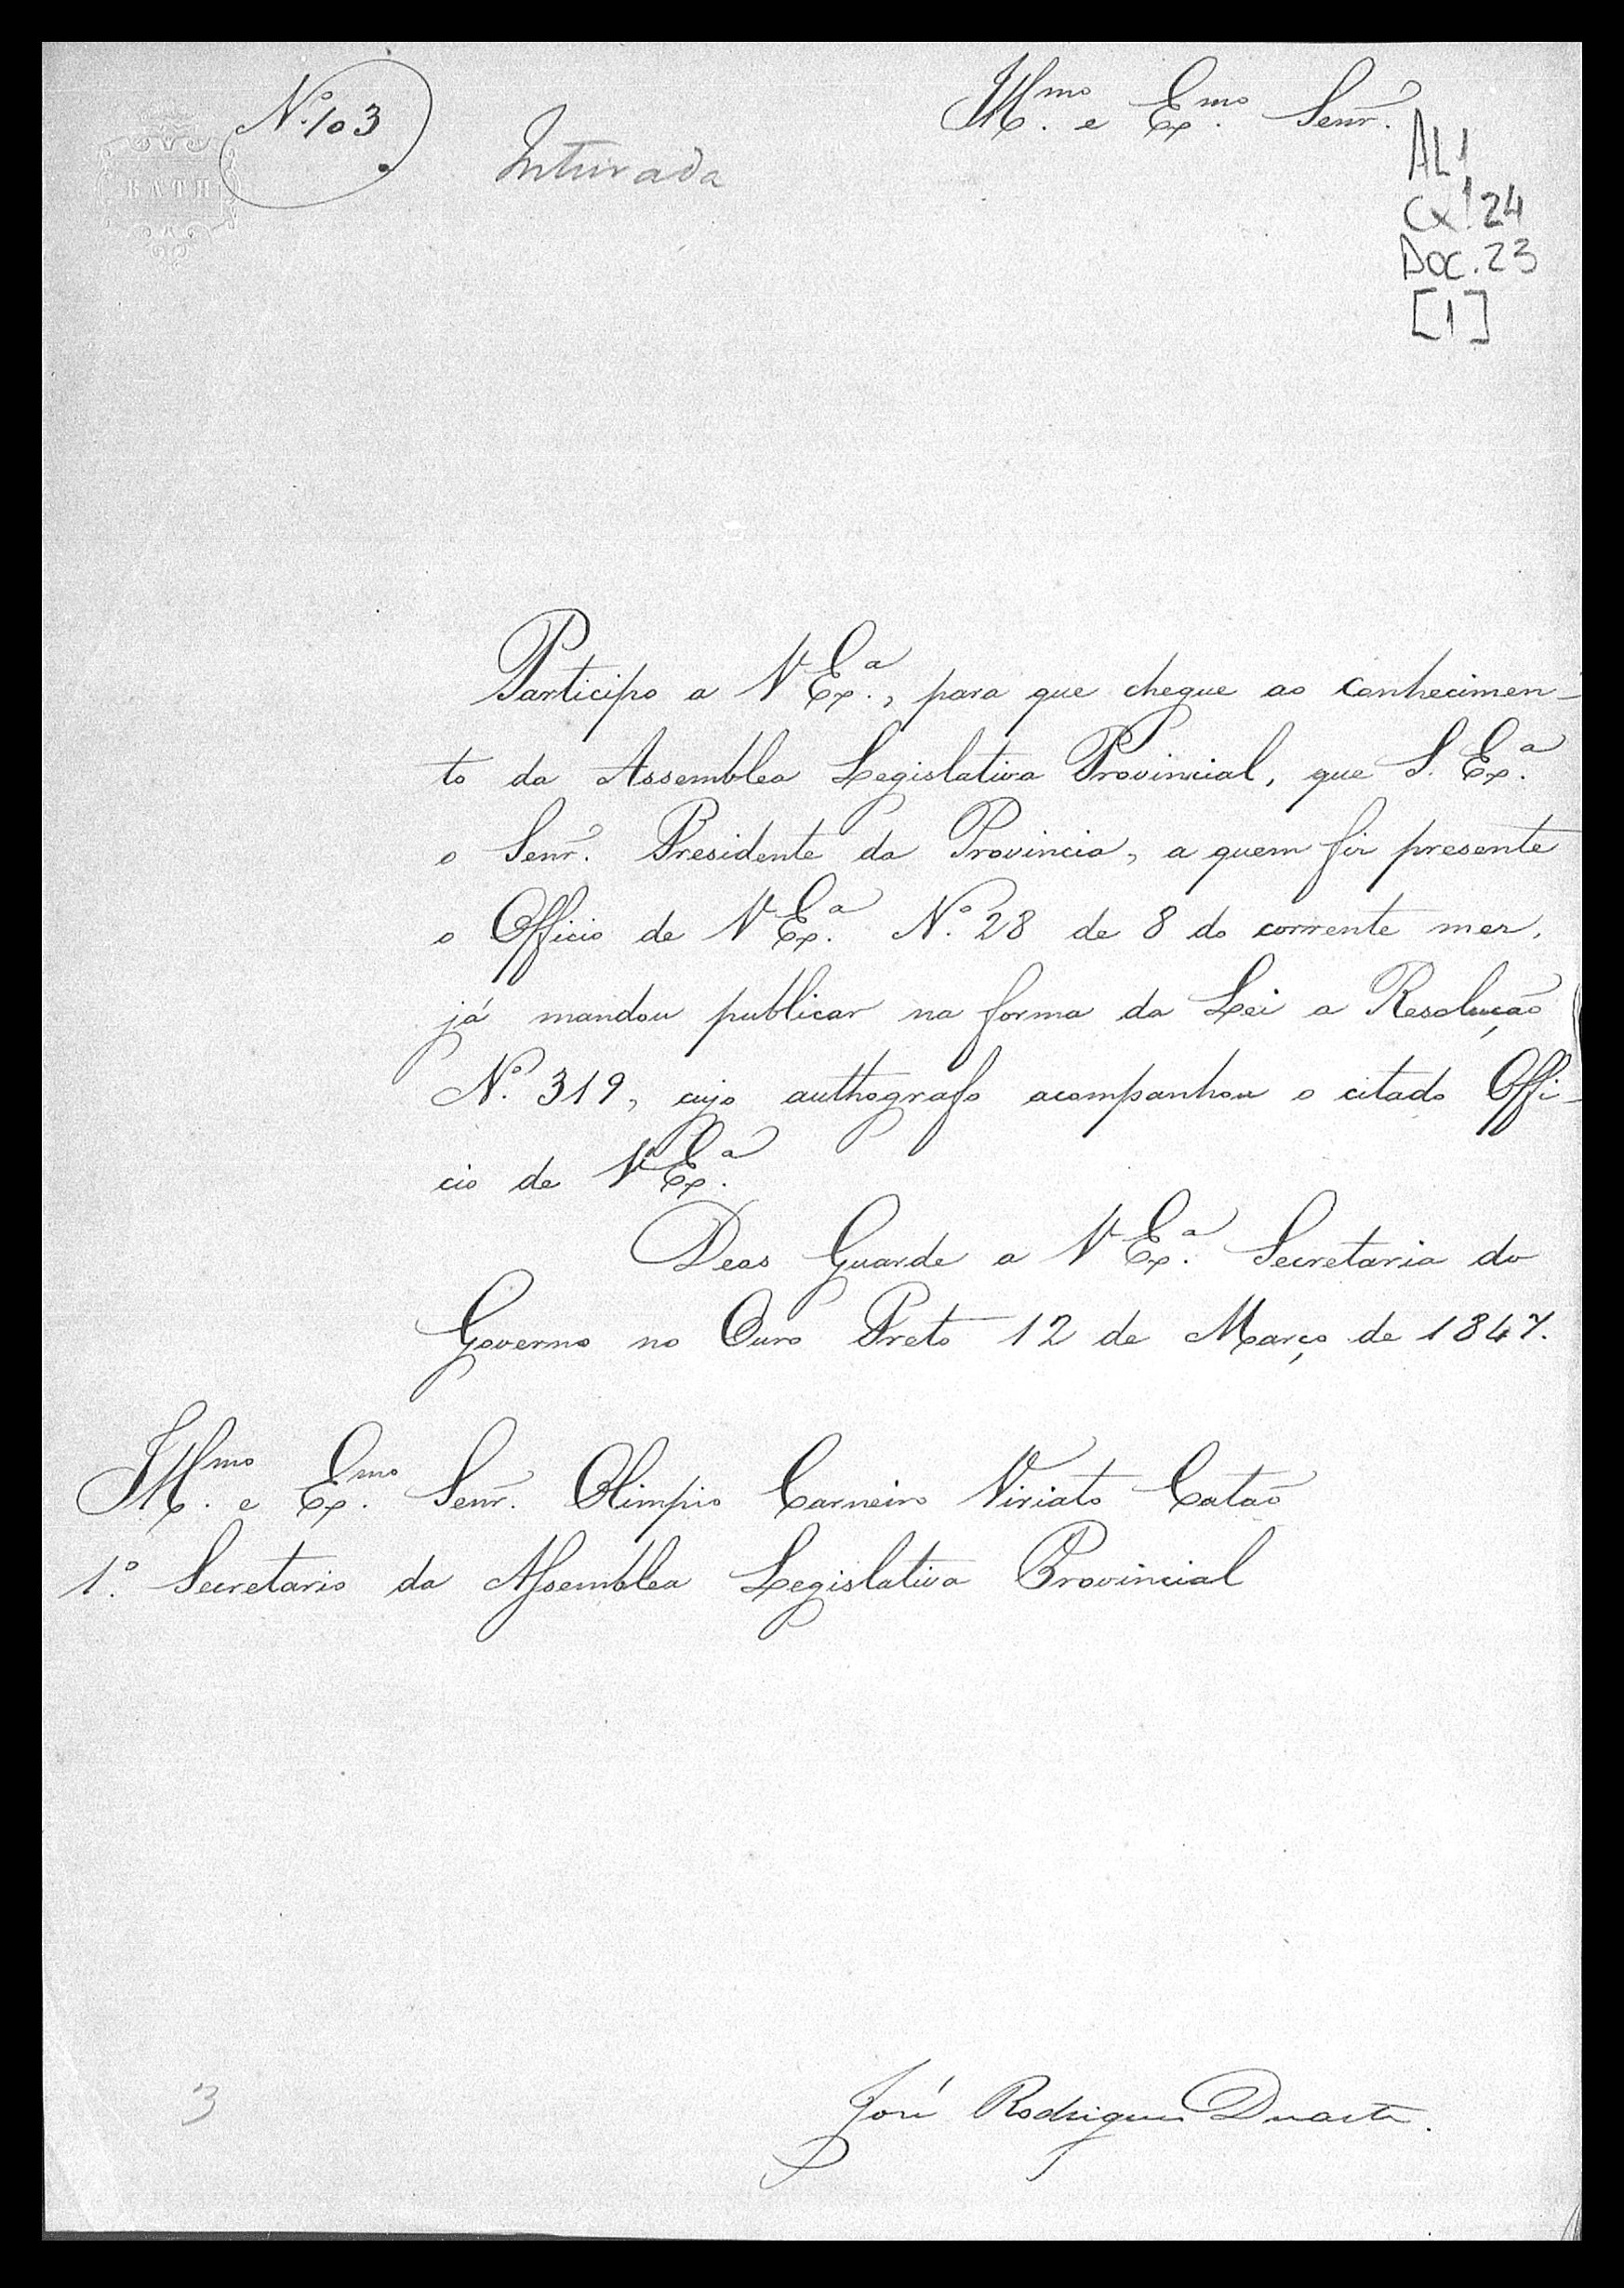 Nº 103
Inteirada
Illmo. e Exmo. Senr.
AL 1
Cx 24
Doc. 23
[1]
BATH
Participo a V Exª., para que chegue ao conhecimen-
to da Assemblea Legislativa Provincial, que S. Exª.
o Senr. Presidente da Provincia, a quem foi presente
o Officio de V Exª. Nº. 28 de 8 do corrente mez,
já mandou publicar na forma da Lei a Resolução
Nº. 319, cujo authografo acompanhou o citado Offi-
cio de V Exª.
Deos Guarde a V Exª. Secretaria do
Governo no Ouro Preto 12 de Março de 1847.
Illmo. e Exmo. Senr. Olimpio Carneiro Viriato Catão
1º. Secretario da Assemblea Legislativa Provincial
3
José Rodrigues Duarte.